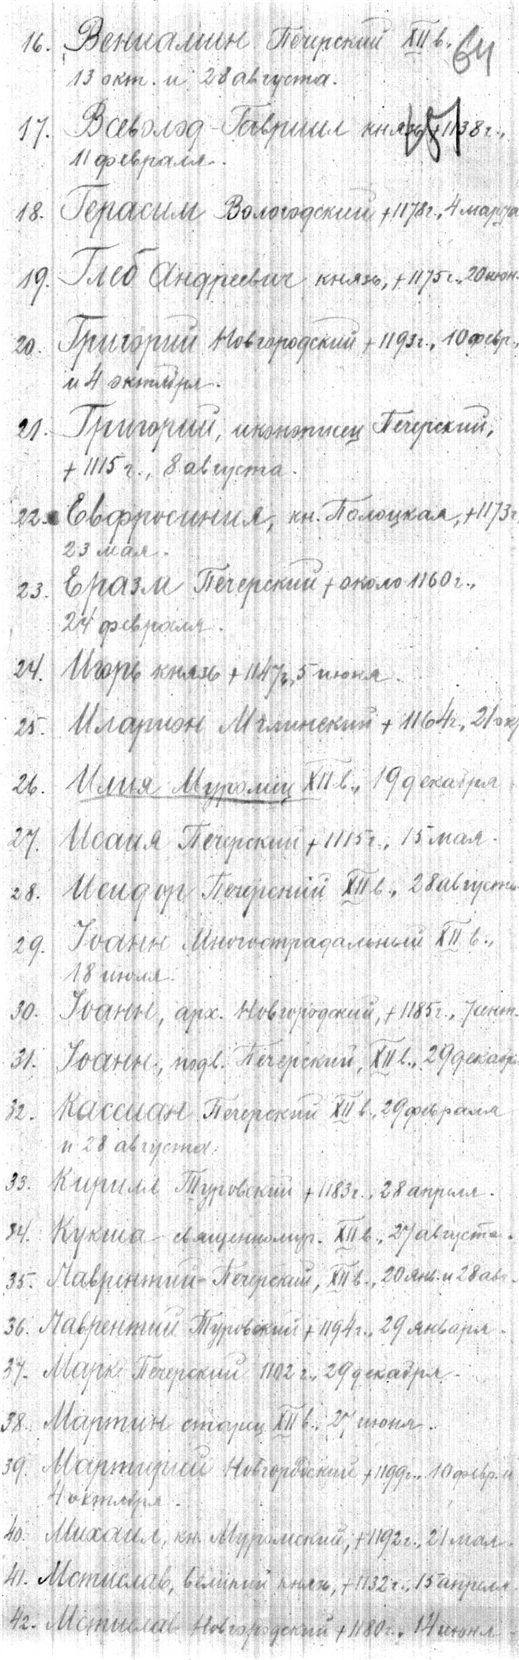 16. Вениамин Печерский XII в., 64
13 окт. и 28 августа.
17. Всеволод-Гавриил князь +1138 г.,
11 февраля.
18. Герасим Вологодский +1178 г., 4 марта
19. Глеб Андреевич князь, +1175 г., 20 июн.
20. Григорий Новгородский +1193 г., 10 февр.,
и 4 октября.
21. Григорий, иконописец Печерский,
+1115 г., 8 августа.
22. Евфросиния, кн. Полоцкая, +1173 г.
23 мая.
23. Еразм Печерский + около 1160 г.,
24 февраля.
24. Игорь князь +1147 г., 5 июня.
25. Иларион Мглинский +1164 г., 21 ок
26. Илия Муромец XII в., 19 декабря
27. Исаия Печерский +1115 г., 15 мая.
28. Исидор Печерский XII в., 28 августа
29. Іоанн Многострадальный XII в.,
18 июля.
30. Іоанн, арх. Новгородский, +1185 г., 7 сент.
31. Іоанн, подв. Печерский, XII в., 29 декабр.
32. Кассиан Печерский XII в., 29 февраля
и 28 августа.
33. Кирилл Туровский +1183 г., 28 апреля.
34. Кукша - священномуч. XII в., 27 августа.
35. Лаврентий - Печерский, XII в., 20 янв. и 28 авг.
36. Лаврентий Туровский +1194 г., 29 января.
37. Марк Печерский 1102 г., 29 декабря.
38. Мартин старец XII в., 27 июня.
39. Мартирий Новгородский +1199 г., 10 февр. и
4 октября.
40. Михаил, кн. Муромский, +1192 г., 21 мая.
41. Мстислав, великий князь, +1132 г., 15 апреля.
42. Мстислав Новгородский +1180 г., 14 июня.